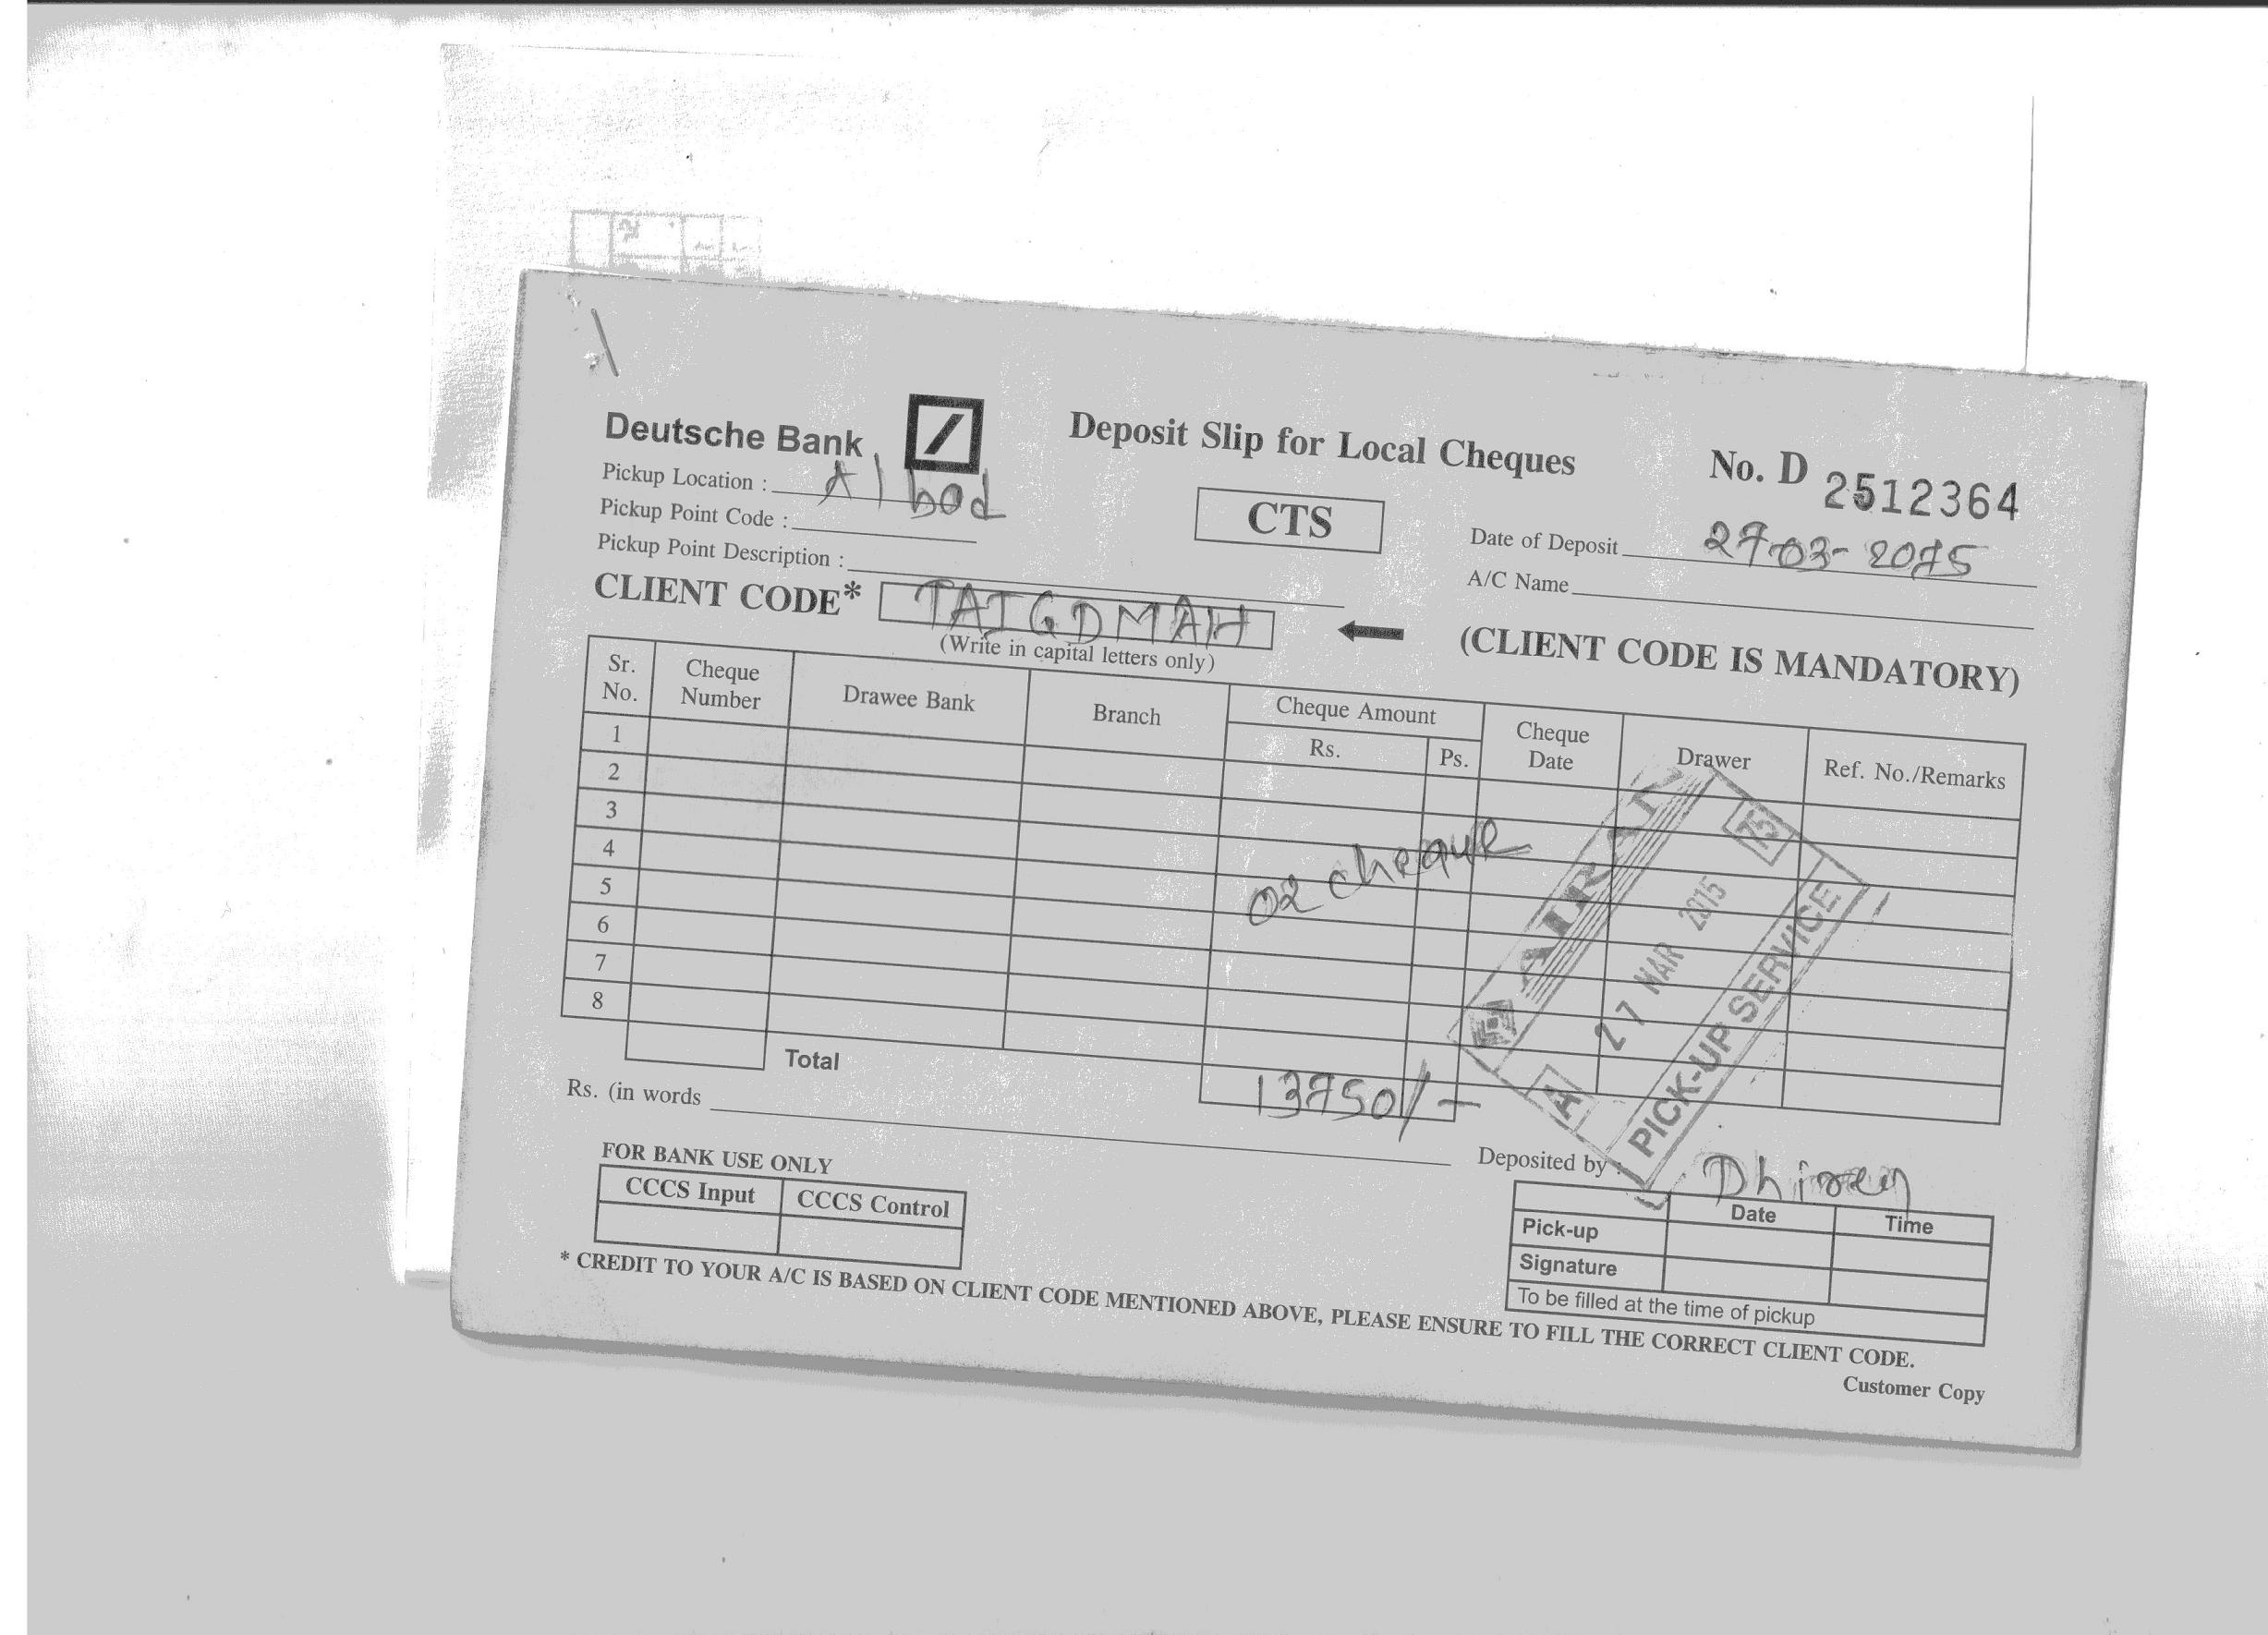 Deutsche Bank
Deposit Slip for Local Cheques
No. D 2512364
Pickup Location : A'bad
Pickup Point Code :
CTS
Date of Deposit 27-03-2015
Pickup Point Description :
A/C Name
CLIENT CODE* TAIGDMAH
(Write in capital letters only)
(CLIENT CODE IS MANDATORY)
Sr. No. Cheque Number Drawee Bank Branch Cheque Amount Rs. Ps. Cheque Date Drawer Ref. No./Remarks
1
2
3
4
5
6
7
8
02 cheque
75
27 MAR 2015
A
PICK-UP SERVICE
Total 13750/-
Rs. (in words
Deposited by : Dhiren
FOR BANK USE ONLY
CCCS Input CCCS Control
Date Time
Pick-up
Signature
To be filled at the time of pickup
* CREDIT TO YOUR A/C IS BASED ON CLIENT CODE MENTIONED ABOVE, PLEASE ENSURE TO FILL THE CORRECT CLIENT CODE.
Customer Copy